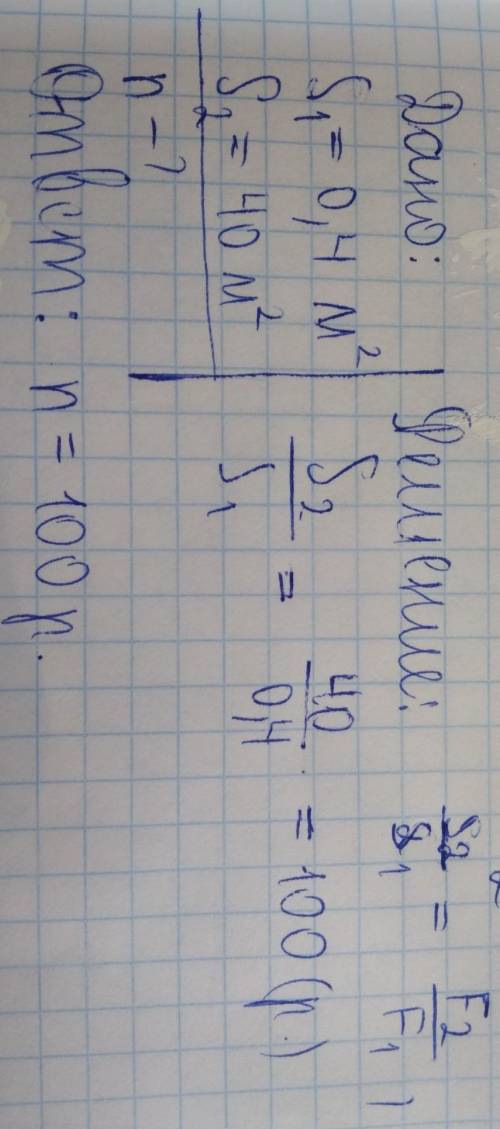 Дано:
S₁ = 0,4 м²
S₂ = 40 м²
n – ?
Решение: S₂/S₁ = F₂/F₁ ,
S₂/S₁ = 40/0,4 = 100 (р.)
Ответ: n = 100 р.